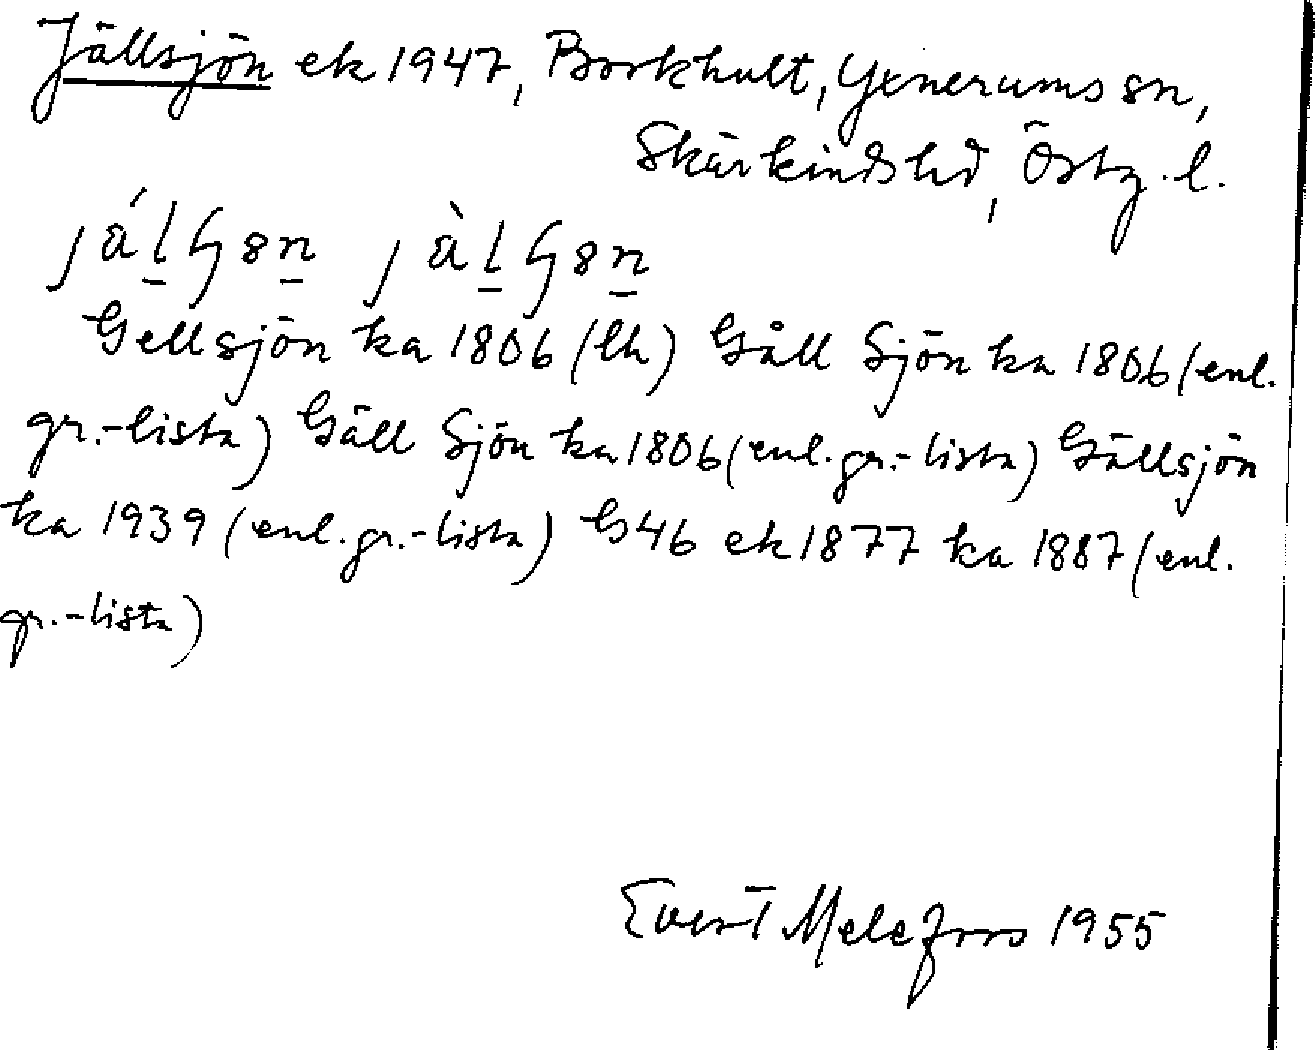 Jällsjön ek 1947, Borkhult, Yxnerums sn,
Skärkinds hd, Östg. l.
Gellsjön ka 1806 (lh) Gåll Sjön ka 1806 (enl.
gr.-lista) Gäll Sjön ka 1806 (enl. gr.-lista) Gällsjön
ka 1939 (enl. gr.-lista) G46 ek 1877 ka 1887 (enl.
gr.-lista)
Evert Melefors 1955